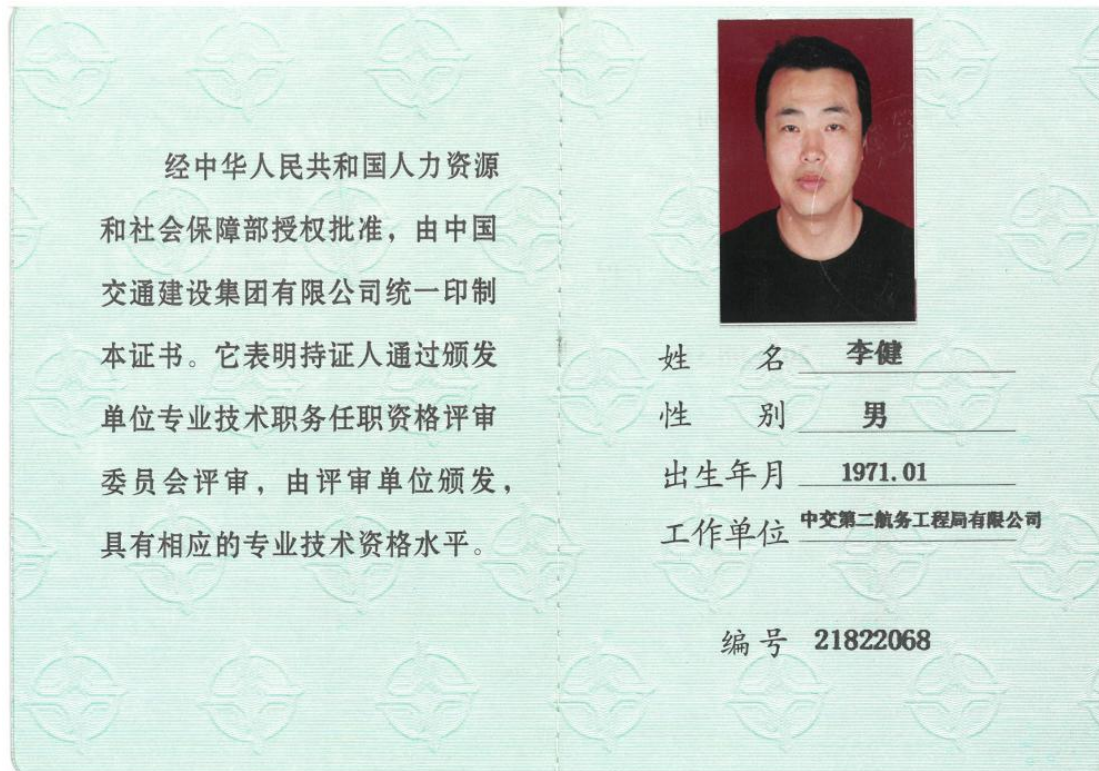 经中华人民共和国人力资源
和社会保障部授权批准，由中国
交通建设集团有限公司统一印制
本证书。它表明持证人通过颁发
单位专业技术职务任职资格评审
委员会评审，由评审单位颁发，
具有相应的专业技术资格水平。
姓 名 李健
性 别 男
出生年月 1971.01
工作单位 中交第二航务工程局有限公司
编号 21822068